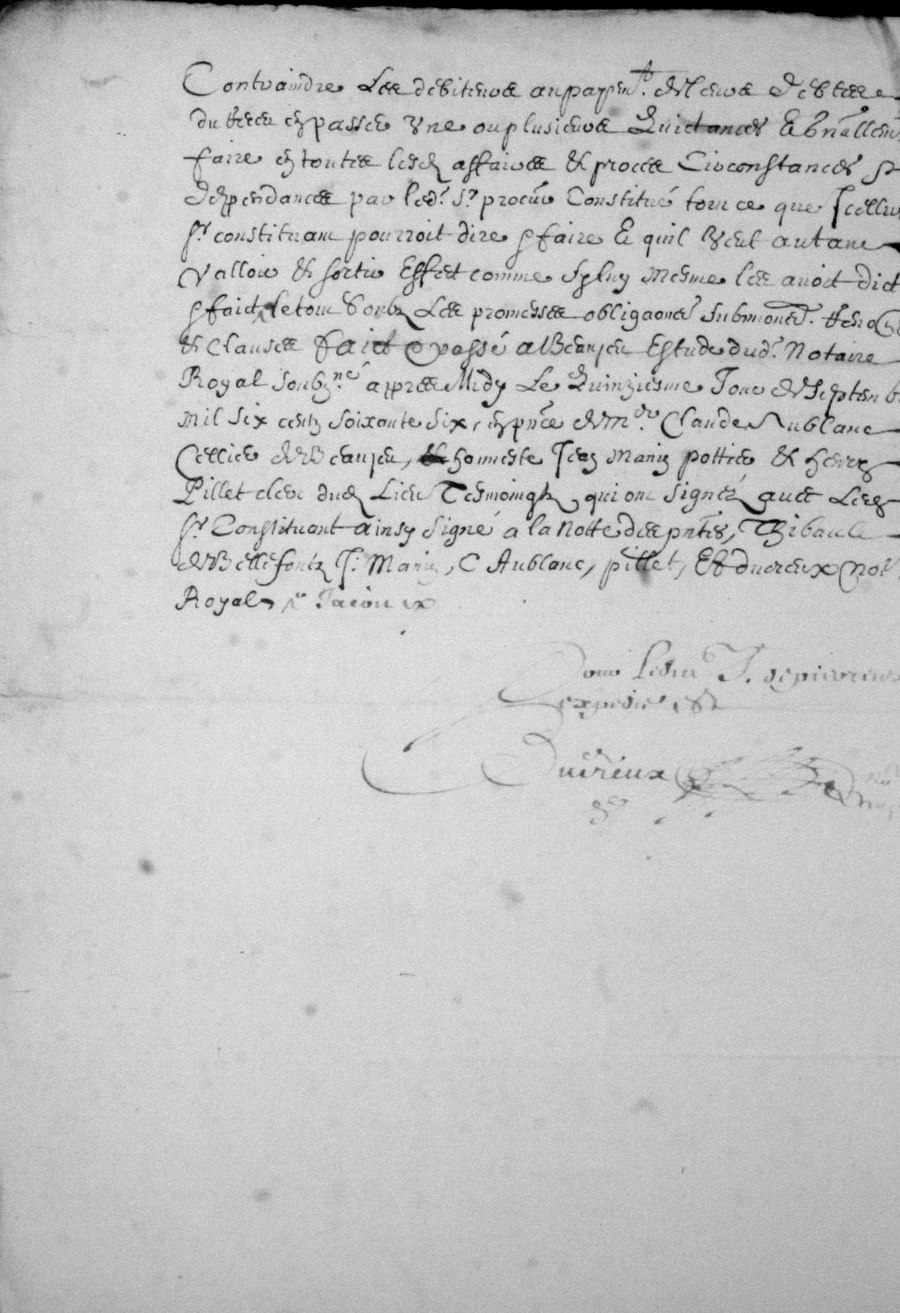 Contraindre Les debiteurs au payemt. de leurs debtes
du brece en passer Une ou plusieurs Quictances & gnallemt
faire en toutes lesd affaires & proces Circonstances &
deppendances par led. Sr. procur Constitué tout ce que Jcelluy
Sr. constituant pourroit dire & faire & quil Veult autant
Valloir & sortir Effet comme sy luy mesme les avoit dict
& faict, le tout soubz Les promesses obligaones submiones. renons
& Clauses faict & passé a Beaujeu Estude dud. Notaire
Royal soubzne. appres Midy Le Quinziesme Jour de Septenb
Mil six centz soixante six, en pnce de Mr. Claude Aublanc
Cellier de Beaujeu, honneste Jean Marin pottier & henry
Pillet clerc dud Lieu Tesmoingtz qui ont signéz avec Led
Sr. Constituant ainsy signé a la Notte des pntes, Thibault
de Bellefontz J. Marin, C Aublanc, pillet, Et ducreux Not.
Royal
Pour Ledict
expedié
Ducreux